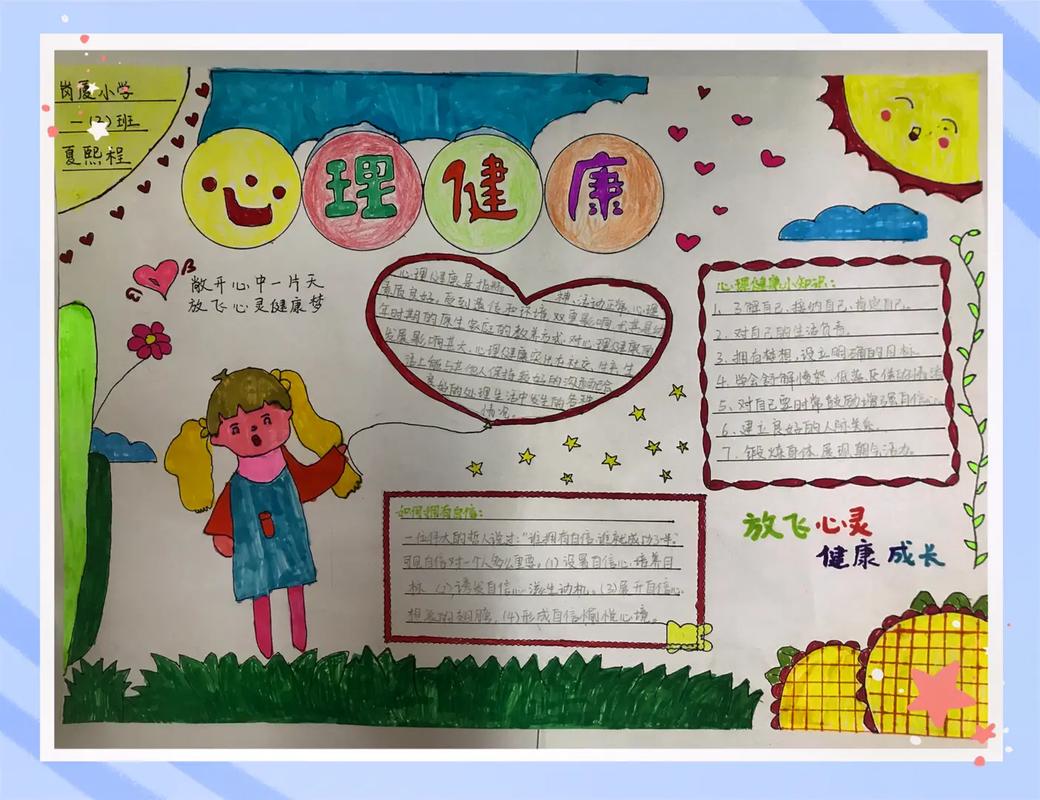 岗厦小学
一(2)班
夏熙程
理健康
敞开心中一片天
放飞心灵健康梦
心理健康是指精神,活动正常,心理
素质良好。受到遗传和环境双重影响,尤其是幼
年时期的原生家庭的教养方式,对心理健康的
发展影响甚大。心理健康突出在社交、
上能与其他人保持较好的沟通配合
良好的处理生活中发生的各种
情况。
心理健康小知识:
1、了解自己,接纳自己,肯定自己。
2、对自己的生活负责。
3、拥有梦想,设立明确的目标。
4、学会纾解愤怒、低落
5、对自己要时常鼓励增强自信心
6、建立良好的人际关系。
7、锻炼身体,展现朝气活力。
如何拥有自信:
一位伟大的哲人说过:“谁拥有自信,谁就成功了一半。”
可见自信对一个人多么重要。(1)设置自信心培养目
标 (2)诱发自信心滋生动机。(3)展开自信心
想象的翅膀。(4)形成自信愉悦心境。
放飞心灵
健康成长